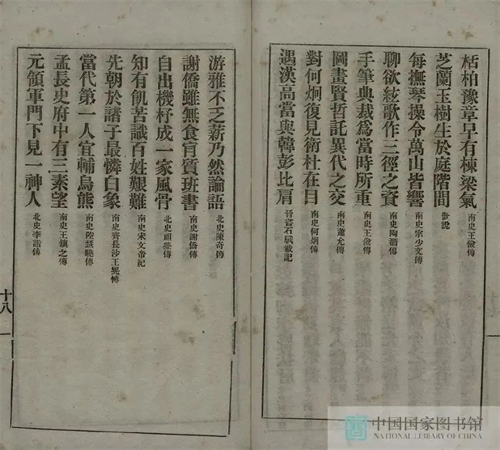 栝柏豫章早有棟梁氣 南史王儉傳
芝蘭玉樹生於庭階間 晉書
每撫琴操令萬山皆響 南史宗少文傳
聊欲絃歌作三徑之資 南史陶潛傳
手筆典裁爲當時所重 南史王儉傳
圖畫賢哲託異代之交 南史蕭允傳
對何炯復見衛杜在目 南史何炯傳
遇漢高當與韓彭比肩 晉書石勒載記
游雅不乏薪乃然論語 北史陳奇傳
謝僑雖無食肯質班書 南史謝僑傳
自出機杼成一家風骨 北史祖瑩傳
知有飢苦識百姓艱難 南史宋文帝紀
先朝於諸子最憐白象 南史齊長沙王晃傳
當代第一人宜輔烏熊 南史陸慧曉傳
孟長史府中有三素望 南史王鎮之傳
元領軍門下見一神人 北史李諧傳
十八
中国国家图书馆
NATIONAL LIBRARY OF CHINA